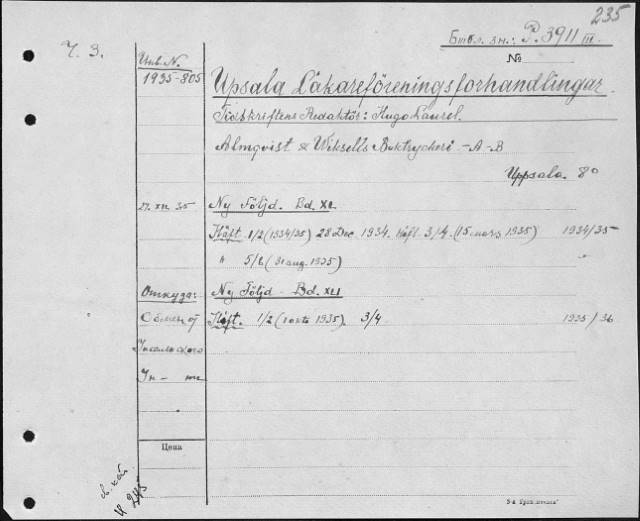 235
Ч. З.
Библ. зн.: P. 3911 III.
Инв. N.
№
1935-805
Upsala Läkareförenings forhandlingar.
Tidskriftens Redaktör: Hugo Laurel.
Almqvist & Wiksells Boktryckeri -A-B
Uppsala. 8°
27.XII 35
Ny Följd. Bd. XL
Häft. 1/2 (1934/35) 28 Dec. 1934. Häft. 3/4. (15 mars 1935) 1934/35
" 5/6 (31 aug. 1935) "
Откуда:
Ny Följd - Bd. XLI
Обмен от
Häft. 1/2 (1 okt. 1935). 3/4 1935/36
Ин- та
Цена